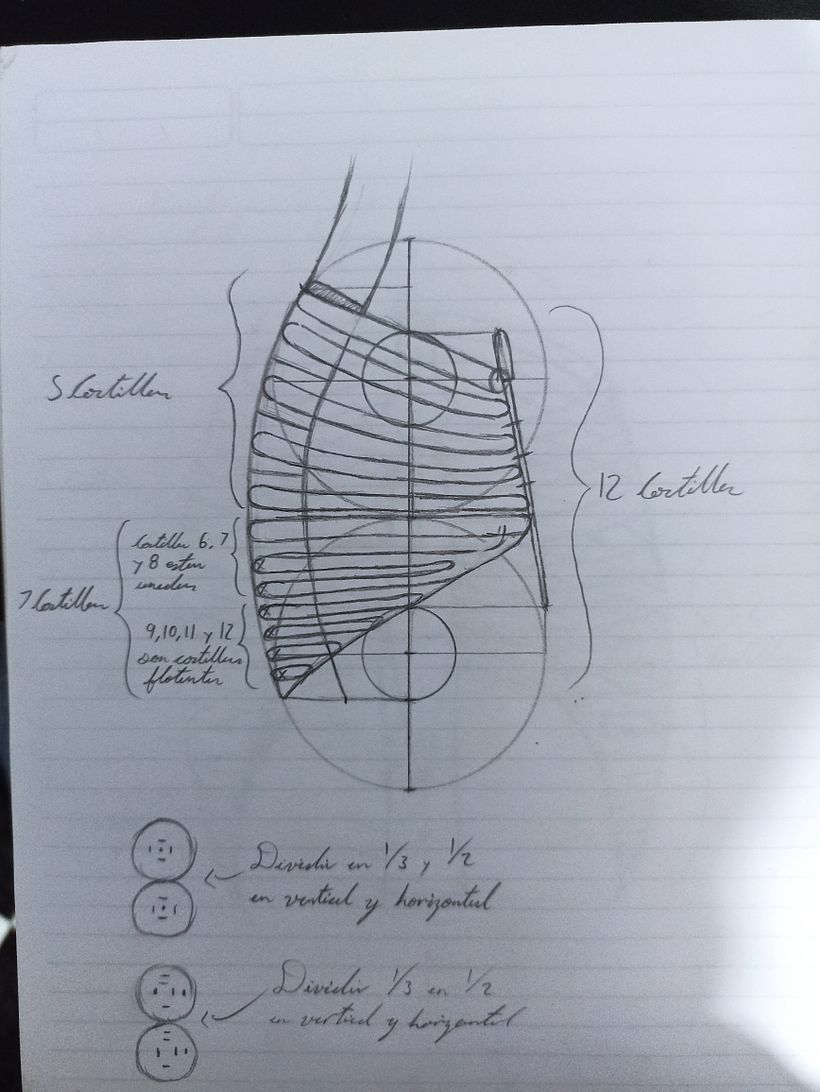 5 Costillas
12 Costillas
7 Costillas
Costillas 6, 7
y 8 estan
unidas
9, 10, 11 y 12
son costillas
flotantes
Dividir en 1/3 y 1/2
en vertical y horizontal
Dividir 1/3 en 1/2
en vertical y horizontal